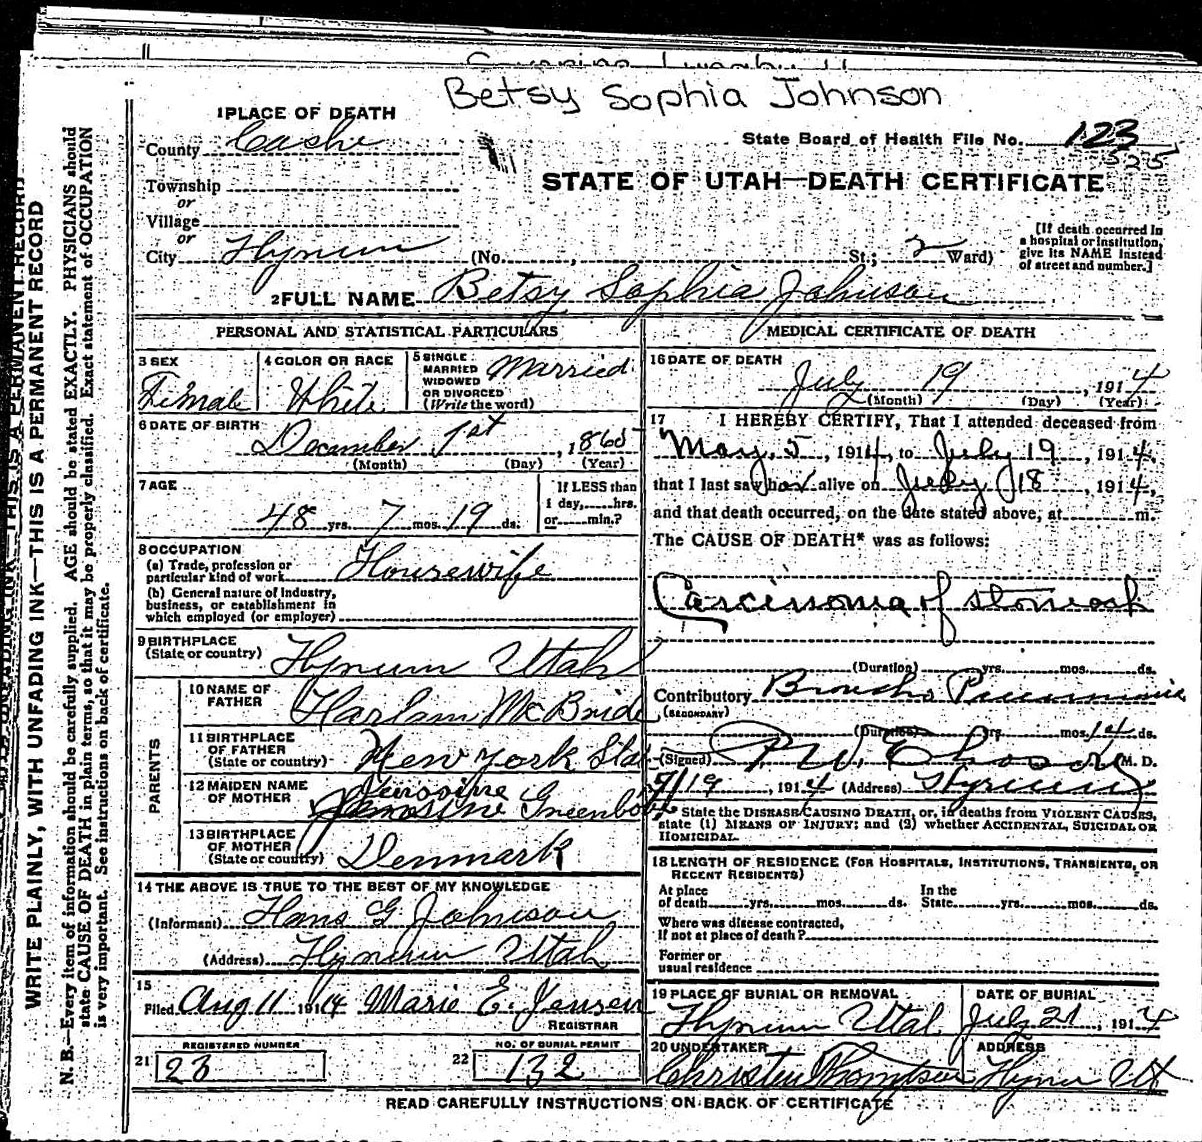 Betsy Sophia Johnson
1 PLACE OF DEATH
County Cashe
State Board of Health File No. 123
525
Township
or
Village
or
City Hyrum (No. , St.; 2 Ward)
STATE OF UTAH—DEATH CERTIFICATE
[If death occurred in
a hospital or institution,
give its NAME instead
of street and number.]
2 FULL NAME Betsy Sophia Johnson
PERSONAL AND STATISTICAL PARTICULARS
3 SEX
Female
4 COLOR OR RACE
White
5 SINGLE
MARRIED
WIDOWED
OR DIVORCED
(Write the word)
Married
6 DATE OF BIRTH
December 1st, 1865
(Month) (Day) (Year)
7 AGE
48 yrs. 7 mos. 19 ds.
If LESS than
1 day, hrs.
or min.?
8 OCCUPATION
(a) Trade, profession or
particular kind of work Housewife
(b) General nature of industry,
business, or establishment in
which employed (or employer)
9 BIRTHPLACE
(State or country) Hyrum Utah
PARENTS
10 NAME OF
FATHER Harlam McBride
11 BIRTHPLACE
OF FATHER
(State or country) New York Sta
12 MAIDEN NAME
OF MOTHER
13 BIRTHPLACE
OF MOTHER
(State or country) Denmark
14 THE ABOVE IS TRUE TO THE BEST OF MY KNOWLEDGE
(Informant) Hans G Johnson
(Address) Hyrum Utah
15
Filed Aug 11 1914 Marie E. Jensen
REGISTRAR
REGISTERED NUMBER
21 23
NO. OF BURIAL PERMIT
22 132
MEDICAL CERTIFICATE OF DEATH
16 DATE OF DEATH
July 19, 1914
(Month) (Day) (Year)
17 I HEREBY CERTIFY, That I attended deceased from
May 5, 1914, to July 19, 1914,
that I last saw her alive on July 18, 1914,
and that death occurred, on the date stated above, at m.
The CAUSE OF DEATH* was as follows:
Carcinoma of stomach
(Duration) yrs. mos. ds.
Contributory Broncho Pneumonia
(SECONDARY)
(Duration) yrs. mos. 14 ds.
(Signed) M. D.
7/19, 1914 (Address) Hyrum
* State the DISEASE CAUSING DEATH, or, in deaths from VIOLENT CAUSES,
state (1) MEANS OF INJURY; and (2) whether ACCIDENTAL, SUICIDAL OR
HOMICIDAL.
18 LENGTH OF RESIDENCE (FOR HOSPITALS, INSTITUTIONS, TRANSIENTS, OR
RECENT RESIDENTS)
At place
of death yrs. mos. ds.
In the
State yrs. mos. ds.
Where was disease contracted,
If not at place of death?
Former or
usual residence
19 PLACE OF BURIAL OR REMOVAL
Hyrum Utah
DATE OF BURIAL
July 21, 1914
20 UNDERTAKER
Christen Thompson
ADDRESS
Hyrum Ut
READ CAREFULLY INSTRUCTIONS ON BACK OF CERTIFICATE
WRITE PLAINLY, WITH UNFADING INK—THIS IS A PERMANENT RECORD
N. B.—Every item of information should be carefully supplied. AGE should be stated EXACTLY. PHYSICIANS should
state CAUSE OF DEATH in plain terms, so that it may be properly classified. Exact statement of OCCUPATION
is very important. See instructions on back of certificate.